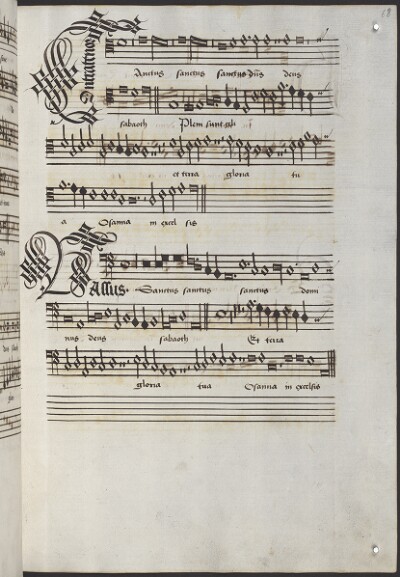 Contratenor
Sanctus sanctus sanctus dns deus
sabaoth Pleni sunt celi
et terra gloria tu
a Osanna in excel sis
Bassus. Sanctus sanctus sanctus domi
nus deus sabaoth Et terra
gloria tua Osanna in excelsis